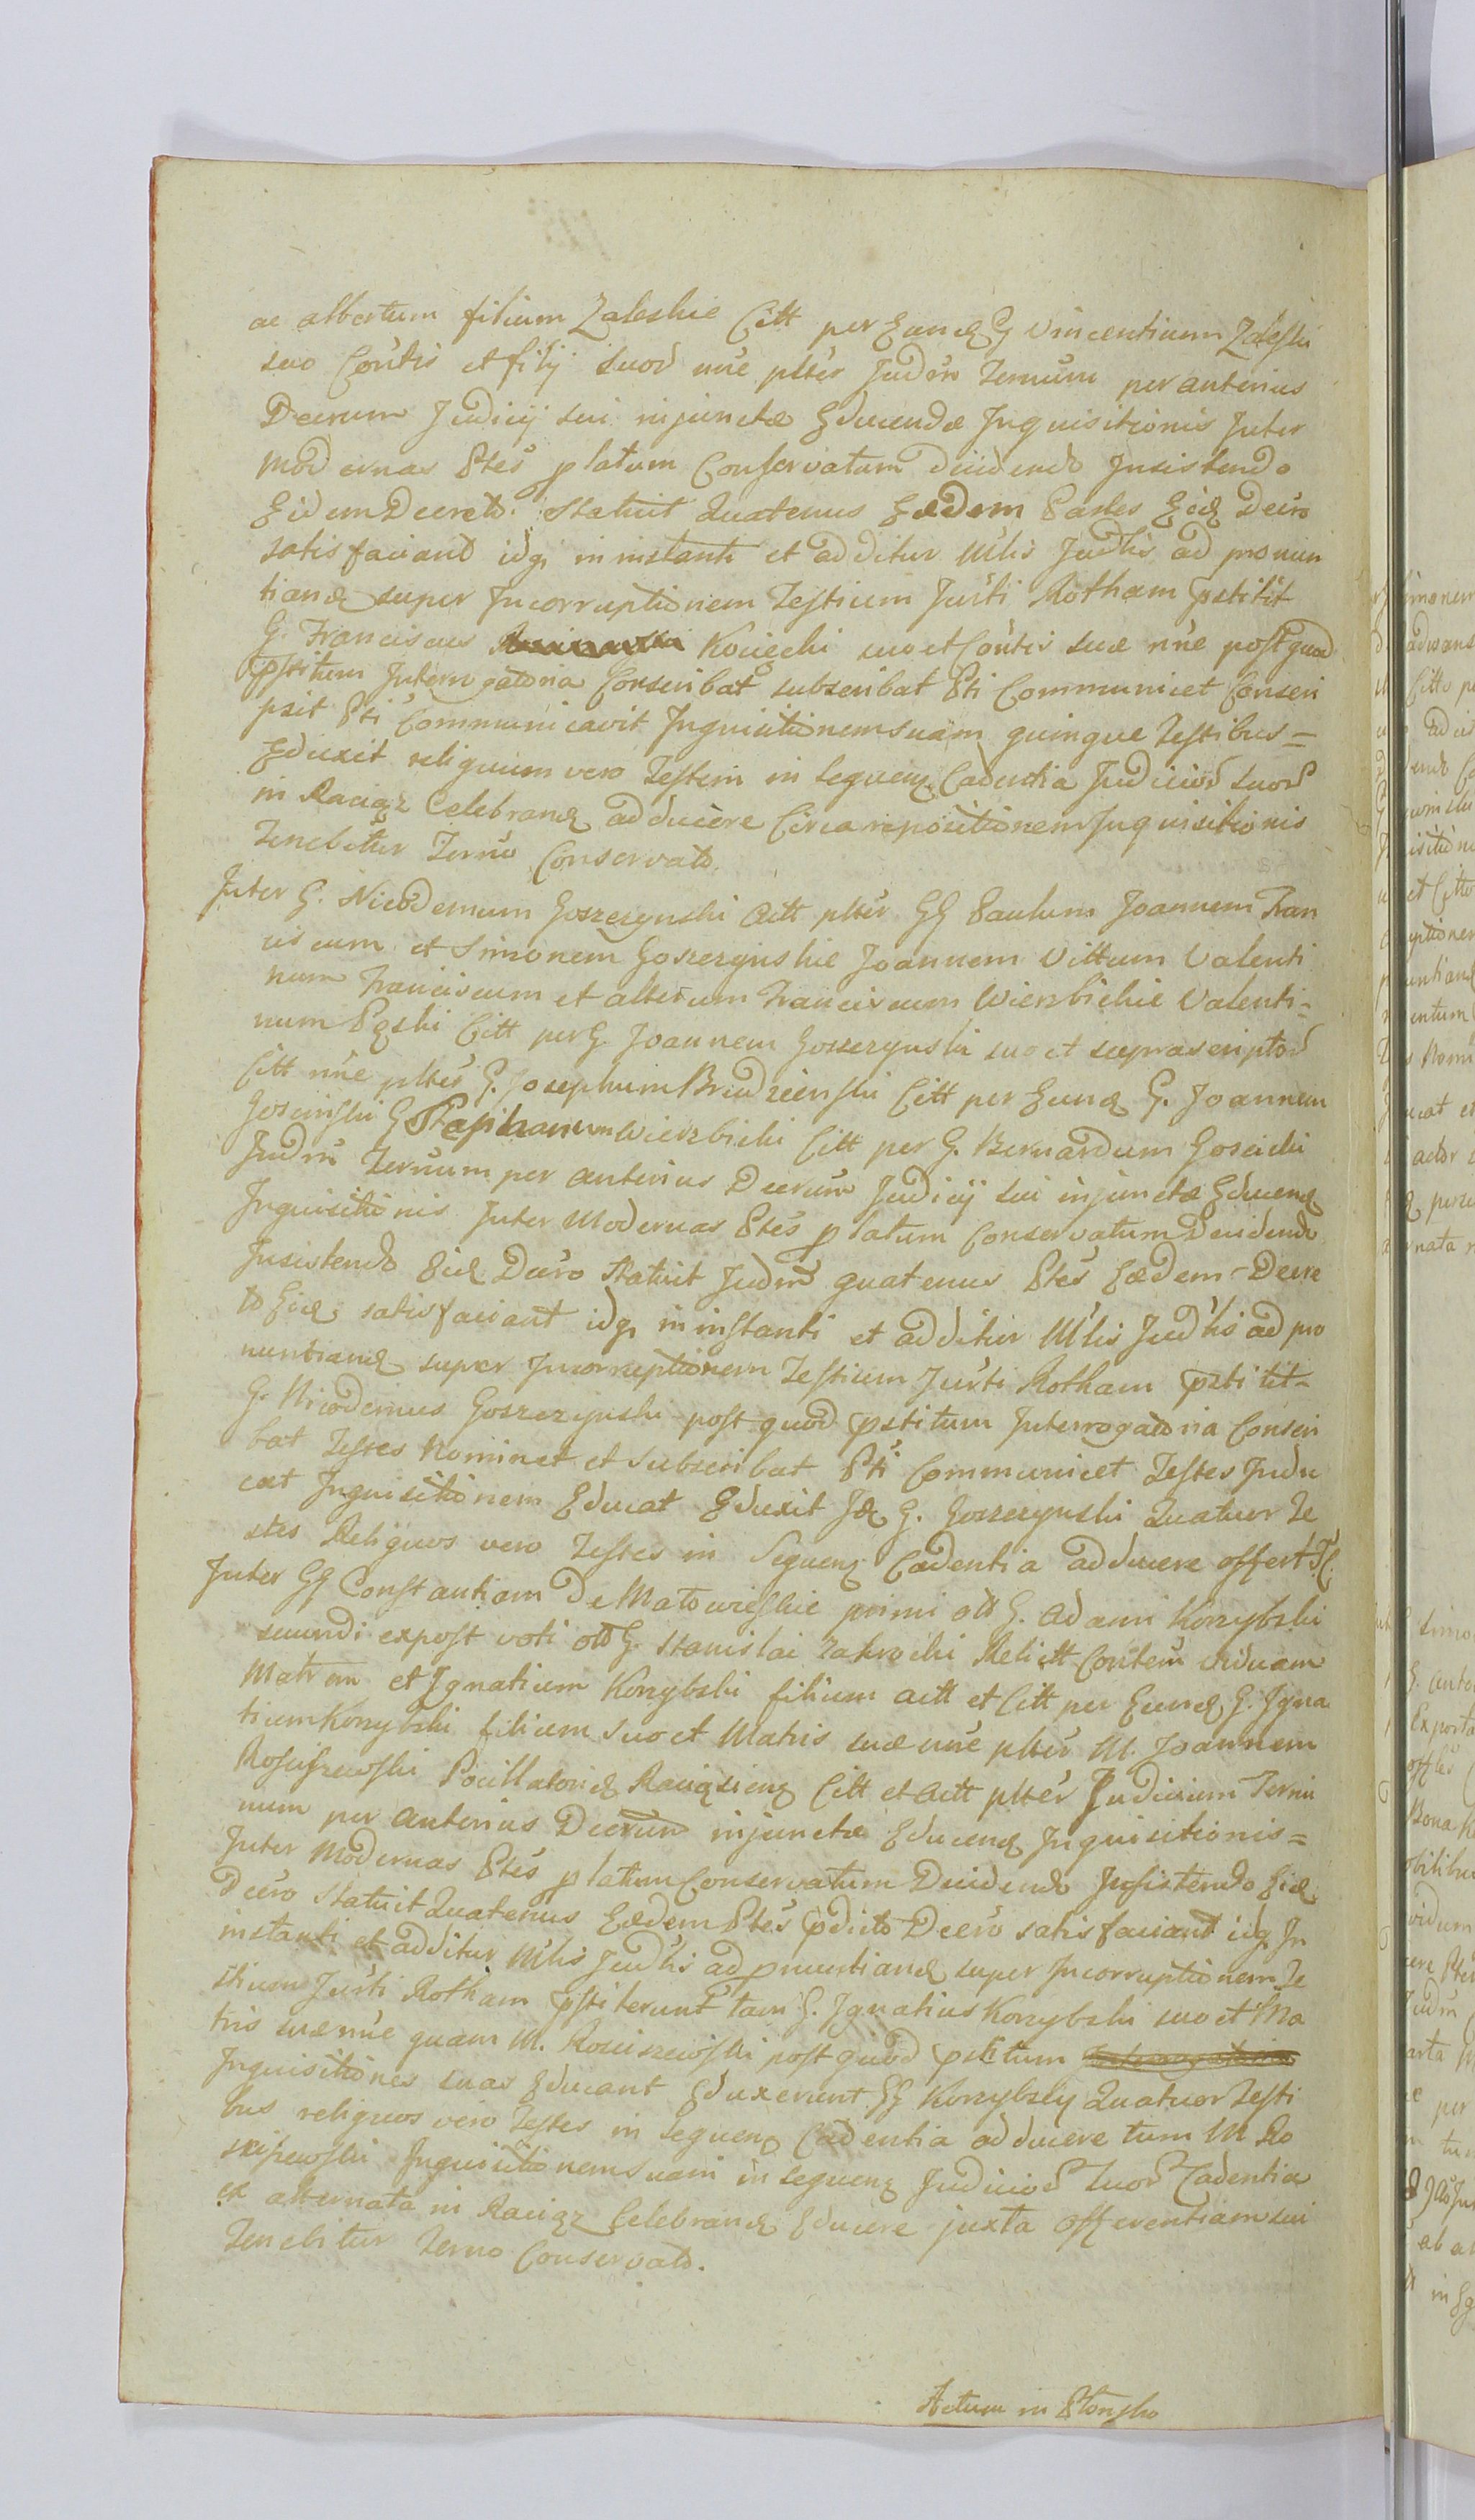 ac albertum filium Zaleskie Citt per Eund G Vincentium Zaleski
suo Contis et filij suor nne plter Judm Termum per anterius
Decrum Judicij sui injunctæ Educendæ Inquisitionis Inter
modernas Ptes p latum Conservatum decidendo Insistendo
Eidem Decreto. Statuit Quatenus Eædem Partes Eid Decro
satisfaciant idq in instanti et additur Mlis Judlis ad pronun
tiand super Incorruptionem Testium Jurti Rotham pstitit
G. Franciscus Kociecki suo et Contis suæ nne post quod
pstitum Interrogatoria Conscribat subscribat Pti Communicet Conscri
psit Pti Communicavit Inquisitionem suam quinque Testibus =
Eduxit reliquum vero Testem in sequen Cadentia Judicior suor
in Raciąz Celebrand adducere Circa repositionem Inquisitionis
Tenebitur Termo Conservato.
Inter G. Nicodemum Goszczynski Actt plter GG Paulum Joannem Fran
ciscum et Simonem Goszczynskie Joannem Vittum Valenti
num Franciscum et alterum Franciscum Wierzbickie Valenti=
num Pąski Citt per G. Joannem Goszczynski suo et suprascriptor
Citt nne plter G. Josephum Brudzienski Citt per Eund G. Joannem
Goscinski G Stephanum Wierzbicki Citt per G. Bernardum Goscicki
Judm Termum per anterius Decrum Judicij sui injunctæ Educend
Inquisitionis Inter Modernas Ptes p latum Conservatum Decidendo
Insistendo Eid Decro Statuit Judm quatenus Ptes Eædem Decre
to Eid satisfaciant idq in instanti et additur Mlis Judlis ad pro
nuntiand super Incorruptionem Testium Jurti Rotham pstitit
G. Nicodemus Goszczynski post quod pstitum Interrogatoria Conscri
bat Testes Nominet et subscribat Pti Communicet Testes Indu
cat Inquisitionem Educat Eduxit Id G. Goszczynski Quatuor Te
stes Reliquos vero Testes in Sequen Cadentia adducere offert TC.
Inter GG Constantiam De Matowieskie primi olt G. Adami Korzybski
secundi expost voti olt G. Stanislai Zakrocki Relictt Contem viduam
Matrem et Ignatium Korzybski filium Actt et Citt per Eund G. Igna
tium Korzybski filium suo et Matris suæ nne plter M. Joannem
Rosciszewski Pocillatorid Raciązien Citt et Actt plter Judicium Termi
num per anterius Decrum injunctæ Educend Inquisitionis =
Inter Modernas Ptes p latum Conservatum Decidendo Insistendo Eid
Decro Statuit Quatenus Eædem Ptes pdicto Decro satisfaciant idq In
instanti et additur Mlis Judlis ad pnuntiand super Incorruptionem Te
stium Jurti Rotham pstiterunt tam G. Ignatius Korzybski suo et Ma
tris suæ nne quam M. Rosciszewski post quod pstitum
Inquisitiones suas Educant Eduxerunt GG Korzybscy Quatuor Testi
bus reliquos vero Testes in sequen Cadentia adducere tum M Ro
sciszewski Inquisitionem suam in sequen Judicior suor Cadentia
ex alternata in Raciąz Celebrand Educere juxta offerentiam sui
Tenebitur Termo Conservato.
Actum in Płonsko